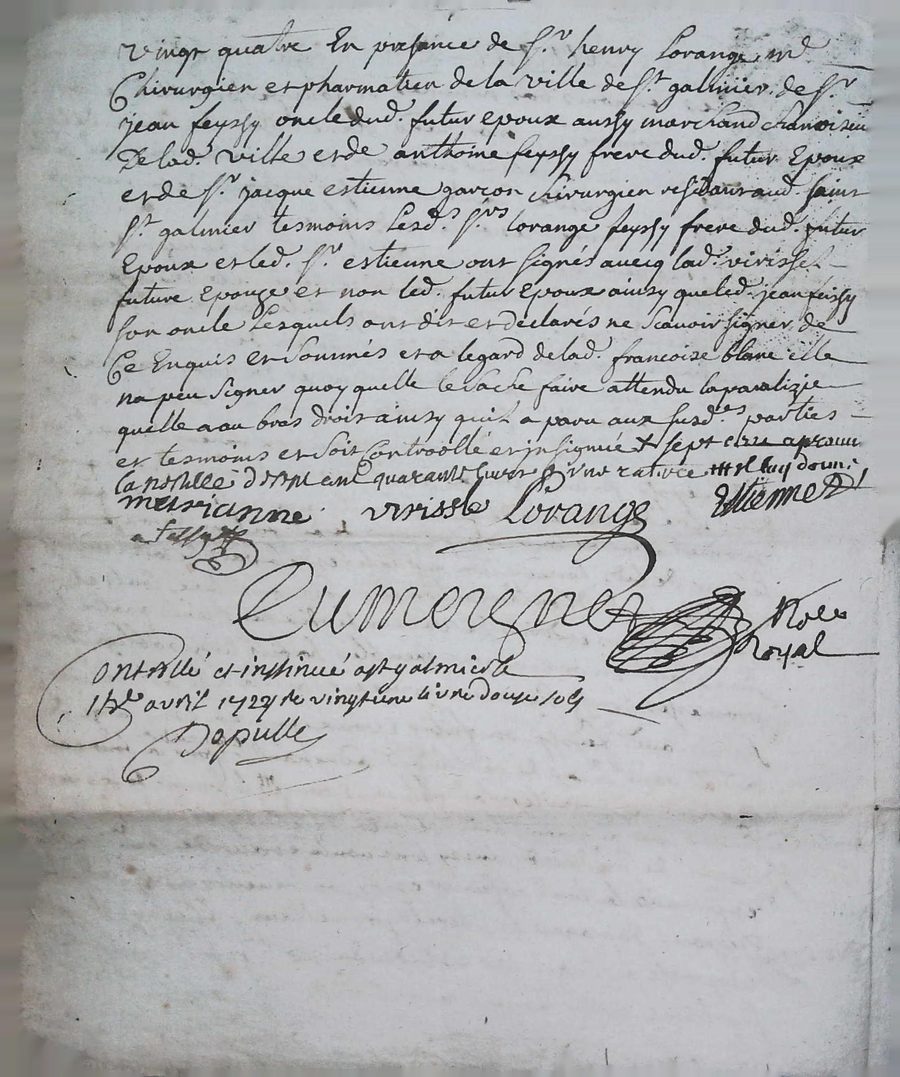 vingt quatre En presance de Sr. henry Lorange, md
Chirurgien et pharmatien de la ville de St. galmier, de Sr.
jean feyssy oncle dud. futur Epoux aussy marchand
De lad. ville et de anthoine feyssy frere dud. futur Epoux
et de Sr. jacque estienne garcon chirurgien aud. saint
St. galmier tesmoins Lesd.s Srs lorange feyssy frere dud. futur
Epoux et led. Sr. estienne ont signés avecq lad. virissel
future Epouze et non led. futur Epoux ainsy que led. jean feissy
son oncle Lesquels ont dit et declarés ne scavoir signer de
Ce Enquis et sommés et a legard de lad. francoise blanc elle
na peu signer quoy quelle le sache faire attendu la paralizie
quelle a au bras droit ainsy quil a paru aux susd.es parties
et tesmoins et soit controollé et insignué sept
quarante rature
meirianne virissle Lorange Estienne
a fessy
Dumoignet Nore
Royal
Controllé et insinué a st galmier le
avril 1727 vingt une livre douze sols
Depulle